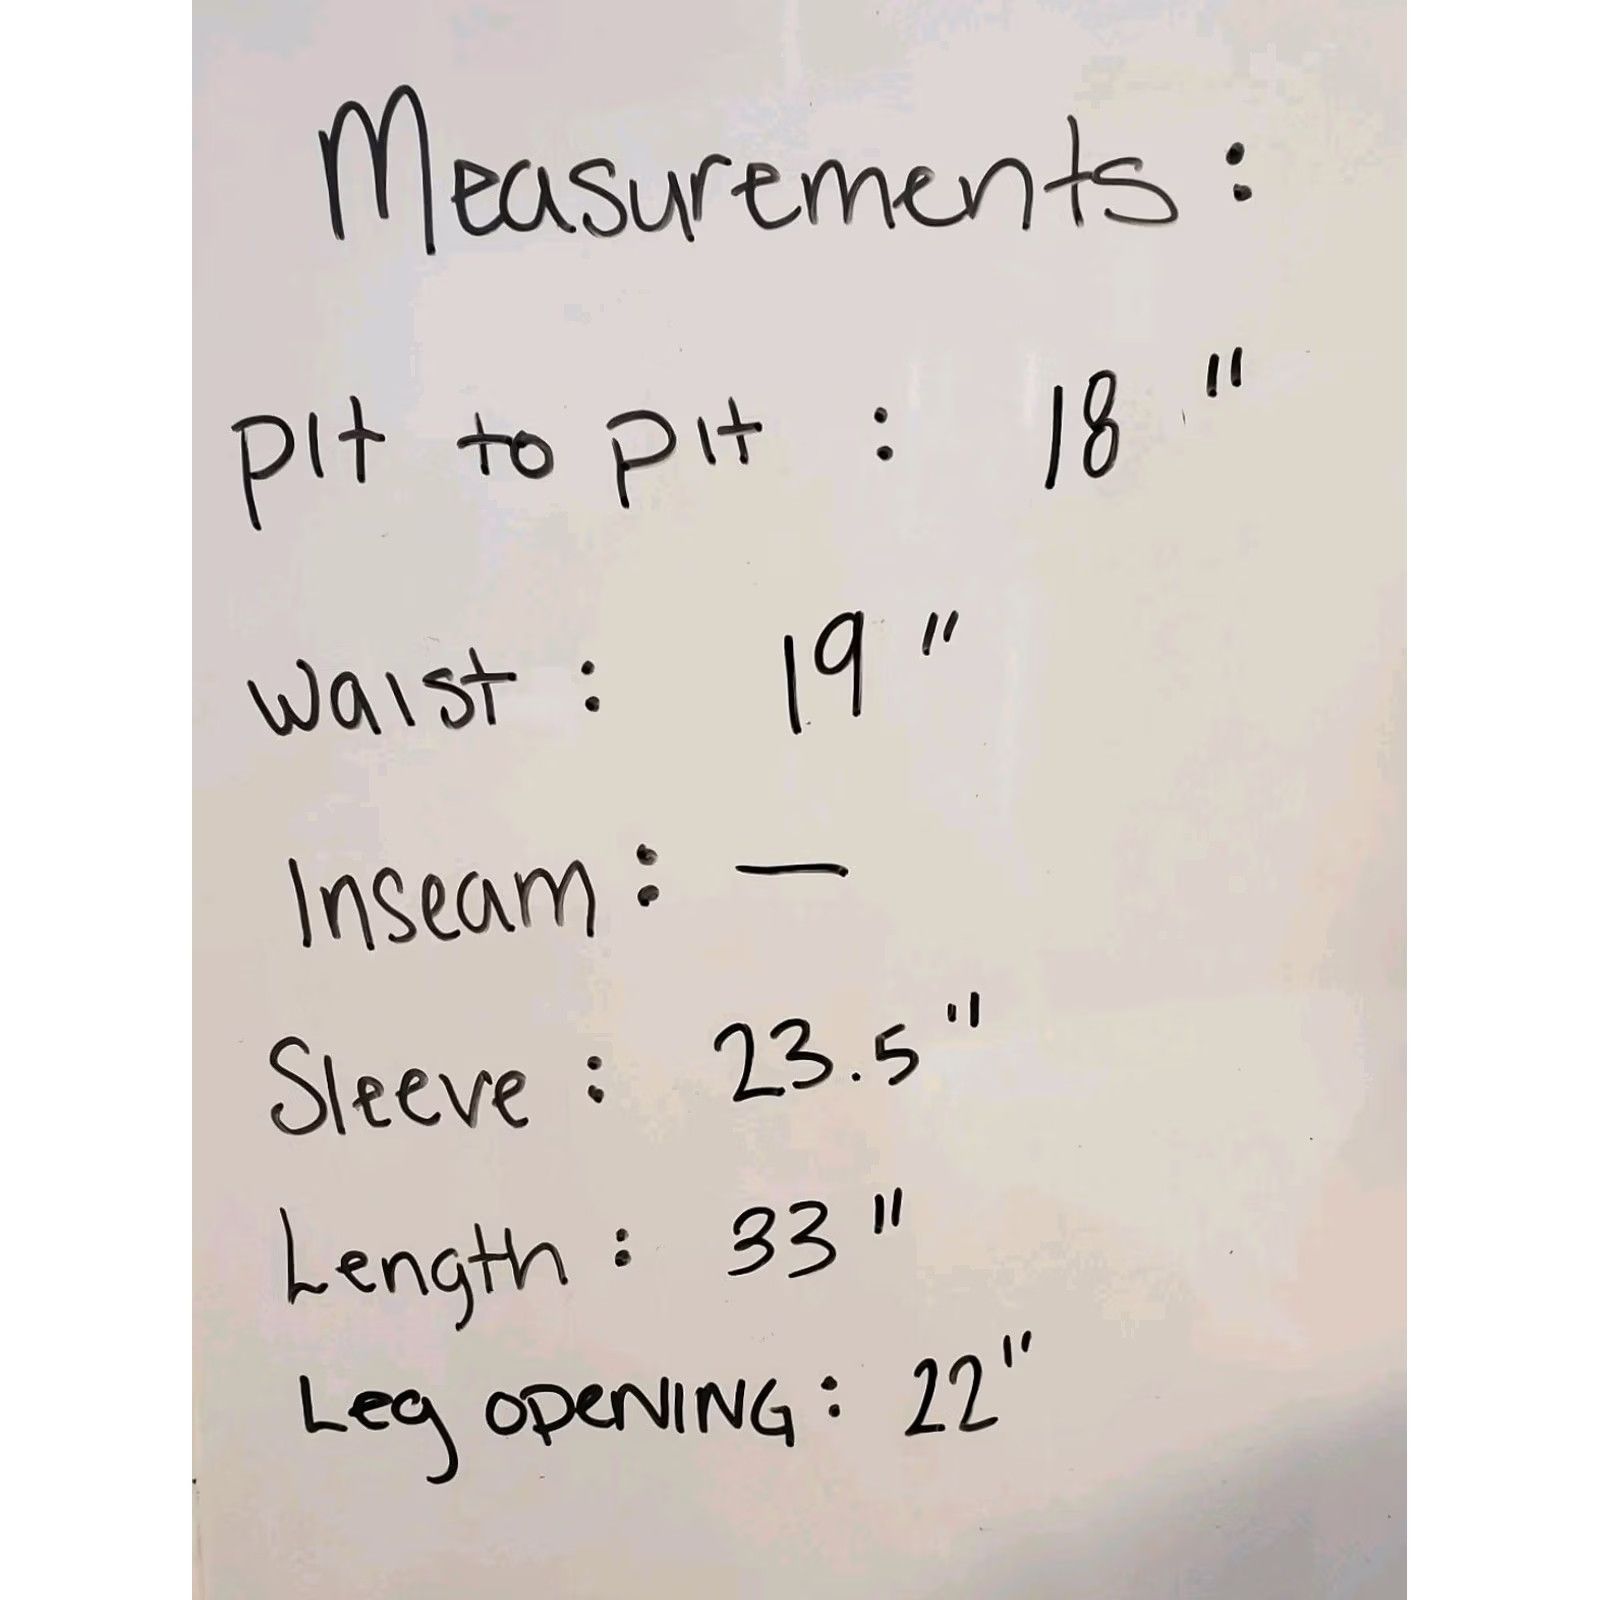 Measurements :
pit to pit : 18 "
waist : 19 "
Inseam : —
Sleeve : 23.5 "
Length : 33 "
Leg OPeNING : 22 "